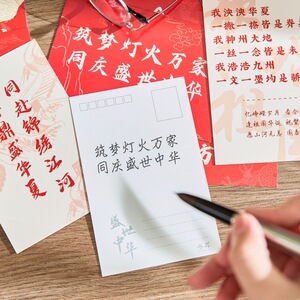 筑梦灯火万家
同庆盛世中华
我泱泱华夏
一撇一捺皆是脊
我神州大地
一丝一念皆是未
我浩浩九州
一文一墨均是骄
同赴锦绣江河
鼎盛华夏
筑梦灯火万家
同庆盛世中华
盛世
中华